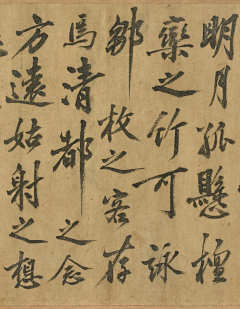 明月孤懸檀
欒之竹可詠
鄒枚之客存
焉清都之念
方遠姑射之想